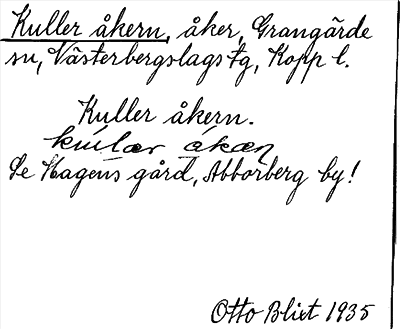 Kuller åkern, åker, Grangärde
sn, Västerbergslags tg, Kopp l.
Kuller åkern.
kular åkan
Se Hagens gård, Abborberg by!
Otto Blixt 1935